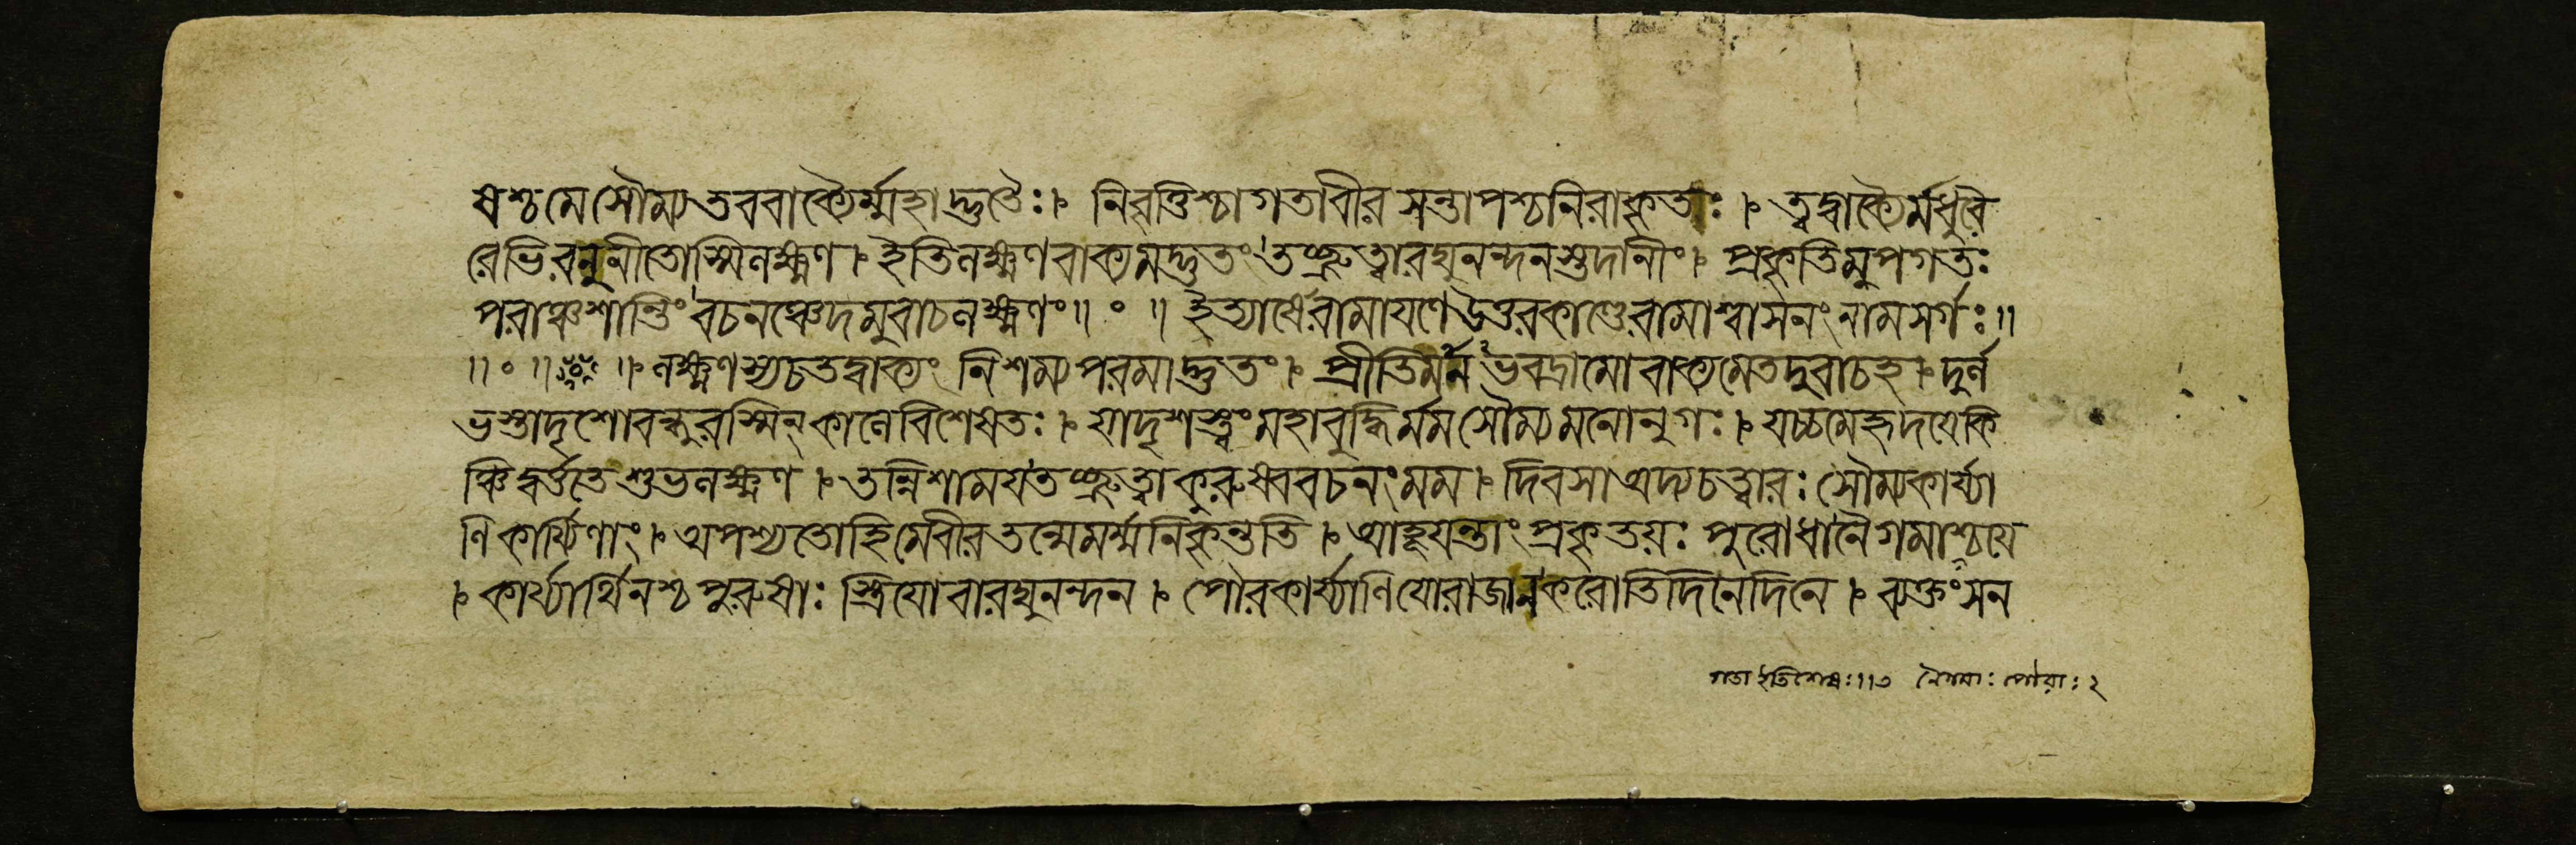 ষশ্চমেসৌম্যতববাক্যৈর্ম্মহাদ্ভুতৈঃ। নিবৃত্তিশ্চাগতাবীরসন্তাপশ্চনিরাকৃতাঃ। ত্বদ্বাক্যৈর্মধুরৈ
রেভিরনুনীতোস্মিলক্ষ্মণ। ইতিলক্ষ্মণবাক্যমদ্ভুতং তচ্ছ্রুত্বারঘুনন্দনস্তুদানীং। প্রকৃতিমুপগতঃ
পরাঞ্চশান্তিং বচনঞ্চেদমুবাচলক্ষ্মণং॥ ॰ ॥ ইত্যার্ষেরামায়ণেউত্তরকাণ্ডেরামাশ্বাসনংনামসর্গঃ॥
॥ ॰ ॥ ॥ লক্ষ্মণস্যচতদ্বাক্যং নিশম্যপরমাদ্ভুতং। প্রীতিমান ভবদ্রামোবাক্যমেতদুবাচহ। দুর্ল
ভস্তাদৃশোবন্ধুরস্মিন্কালেবিশেষতঃ। যাদৃশস্ত্বংমহাবুদ্ধির্মমসৌম্যমনোনুগঃ। যচ্চমেহৃদয়েকি
ঞ্চিদ্বর্ত্ততেশুভলক্ষ্মণ। তন্নিশাময়তচ্ছ্রুত্বাকুরুষ্ববচনংমম। দিবসাঅদ্যচত্বারঃসৌম্যকার্য্যা
ণিকার্যিণাং। অপশ্যতোহিমেবীরতন্মেমর্ম্মনিকৃন্ততি। আহূয়ন্তাংপ্রকৃতয়ঃ পুরোধানৈগমাশ্চয়ে
। কার্য্যার্থিনশ্চপুরুষাঃ স্ত্রিয়োবারঘুনন্দন। পৌরকার্য্যাণিযোরাজানকরোতিদিনেদিনে। ব্যক্তংসন
গতা ইতিশেষঃ॥৩ নৈগমাঃ পৌরাঃ ২